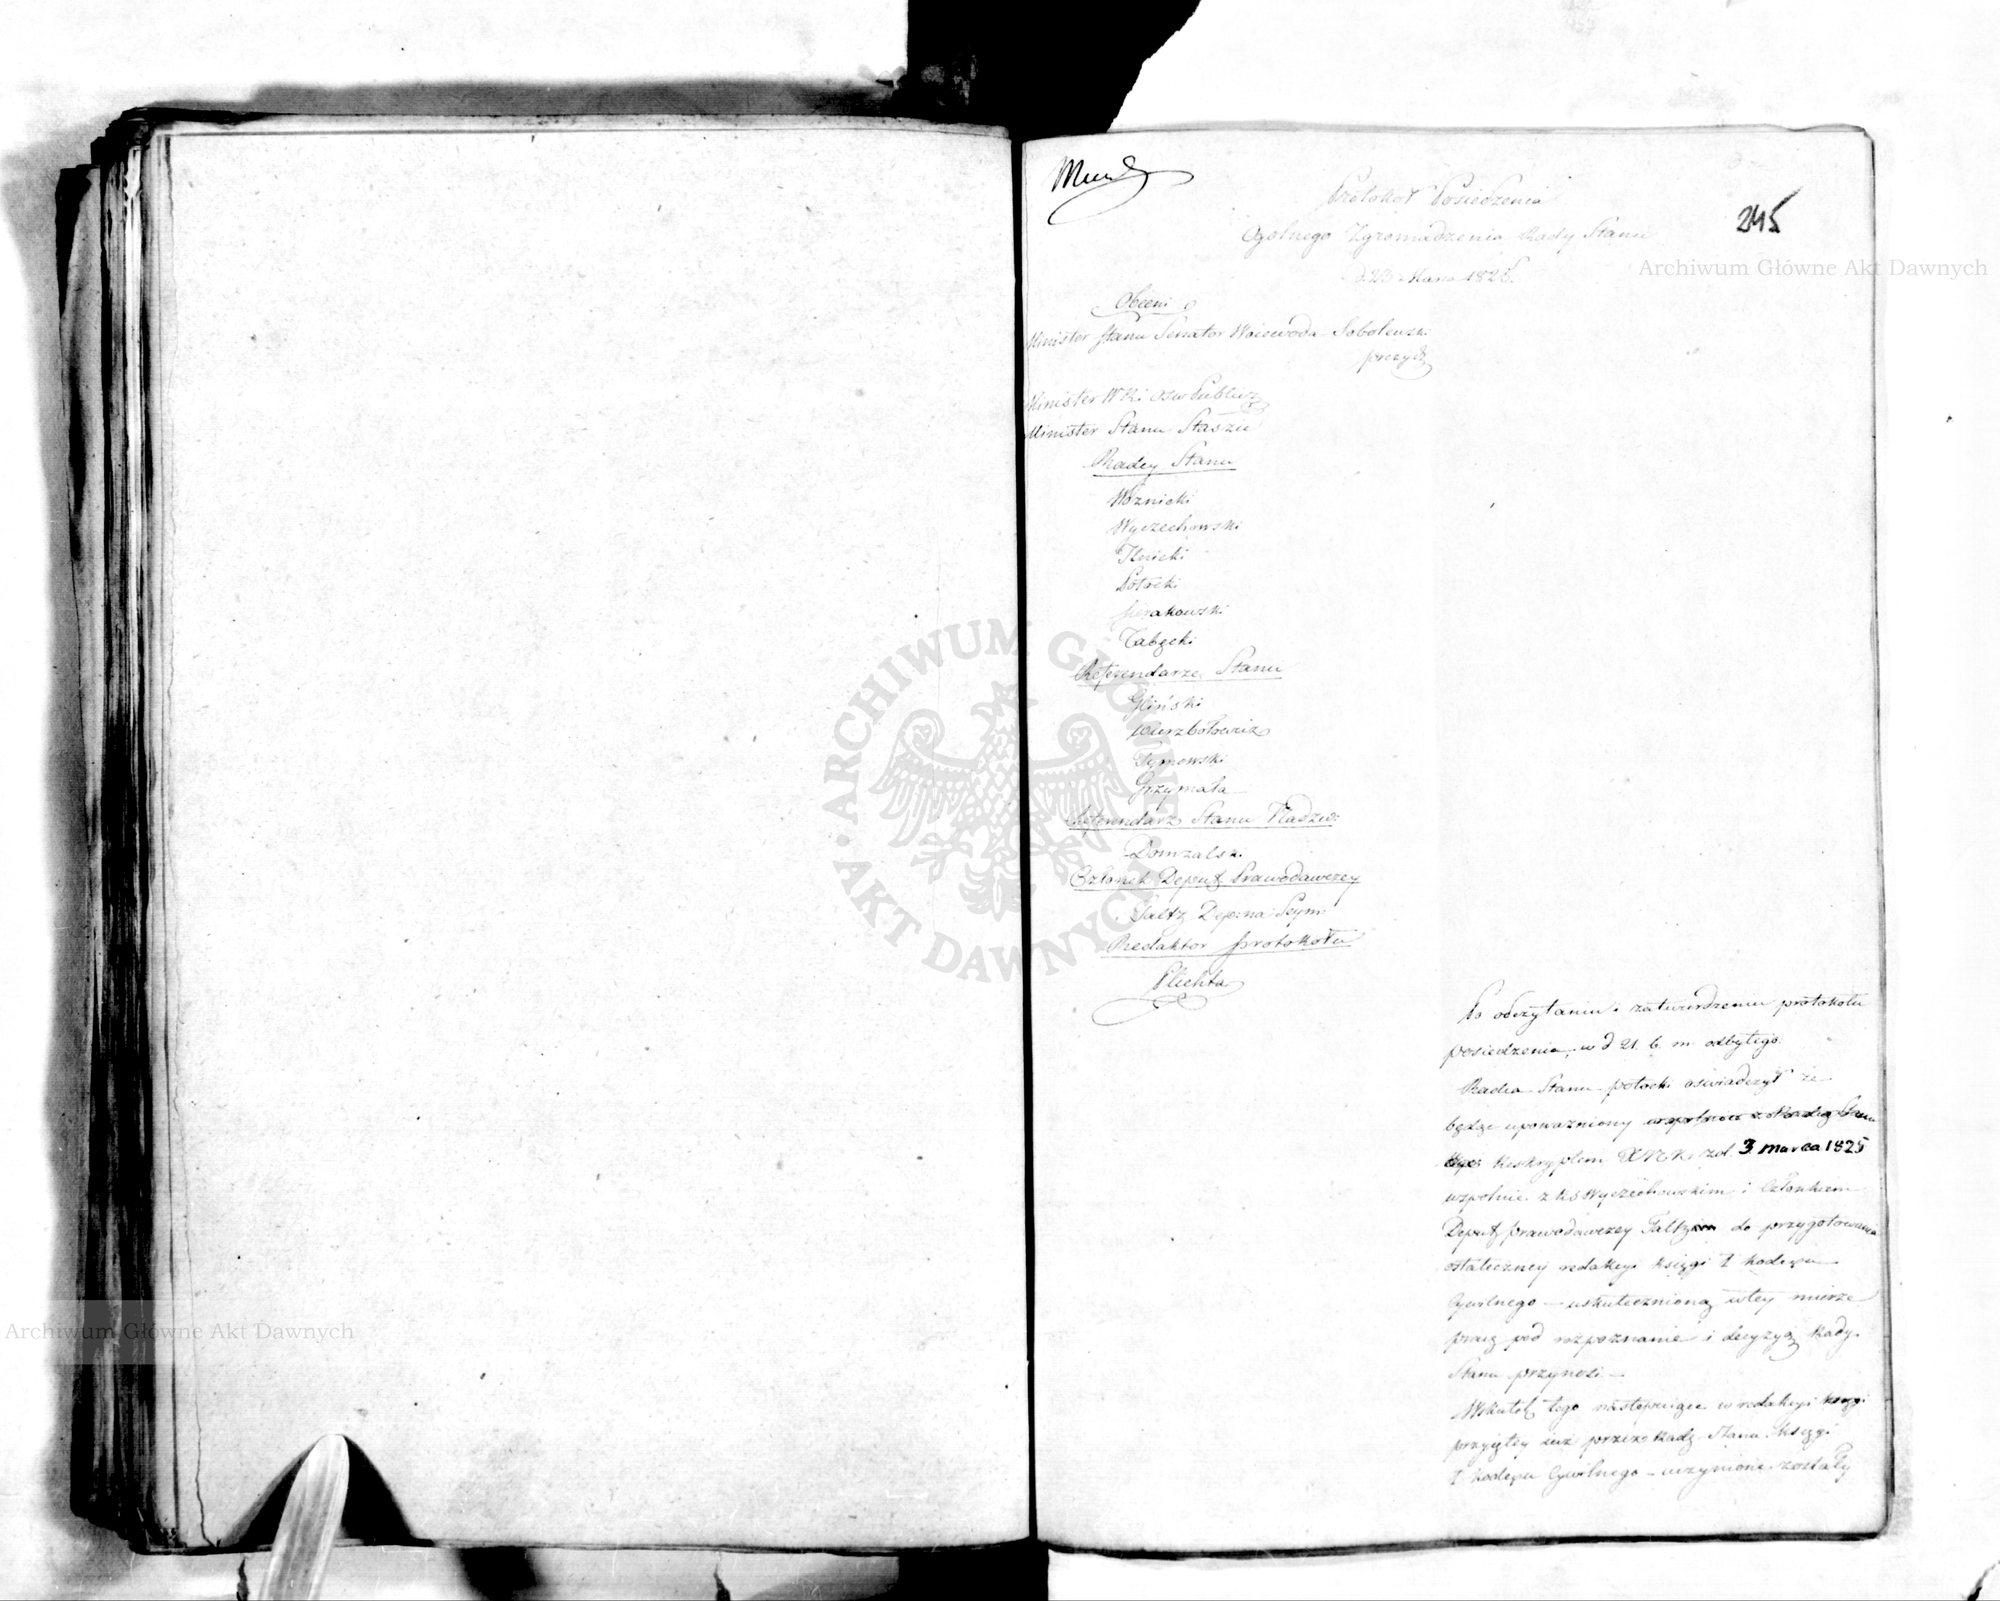 Mund
Protokół Posiedzenia
245
Ogolnego Zgromadzenia Rady Stanu
d. 23 Marca 1825.
Archiwum Główne Akt Dawnych
Obecni
Minister Stanu Senator Woiewoda Sobolewski
prezyd
Minister WR i Osw Publicz
Minister Stanu Staszic
Radcy Stanu
Woznicki
Wyczechowski
Ilnicki
Potocki
Sierakowski
Tabęcki
Referendarze Stanu
Gliński
Wierzbołowicz
Tymowski
Grzymała
Referendarz Stanu Nadzw:
Domzalski
Członek Deput Prawodawczey
Faltz Dep: na Seym
Redaktor protokołu
Plichta
ARCHIWUM GŁÓWNE AKT DAWNYCH
Po odczytaniu i zatwierdzeniu protokołu
posiedzenia w d 21. b. m. odbytego.
Radca Stanu Potocki oświadczył że
będąc upoważniony wspolnie z Radcą Stanu
Reskryptem XNK z d. 3 marca 1825
wspolnie z RS Wyczechowskim i Członkiem
Deput prawodawczey Faltz do przygotowania
ostateczney redakcyi księgi I kodexu
Cywilnego – uskutecznioną w tey mierze
pracę pod rozpoznanie i decyzyą Rady
Stanu przynosi. –
Wskutek tego następuiące w redakcyi
przyiętey iuż przez Radę Stanu księgi
I kodexu Cywilnego – uczynione zostały
Archiwum Główne Akt Dawnych